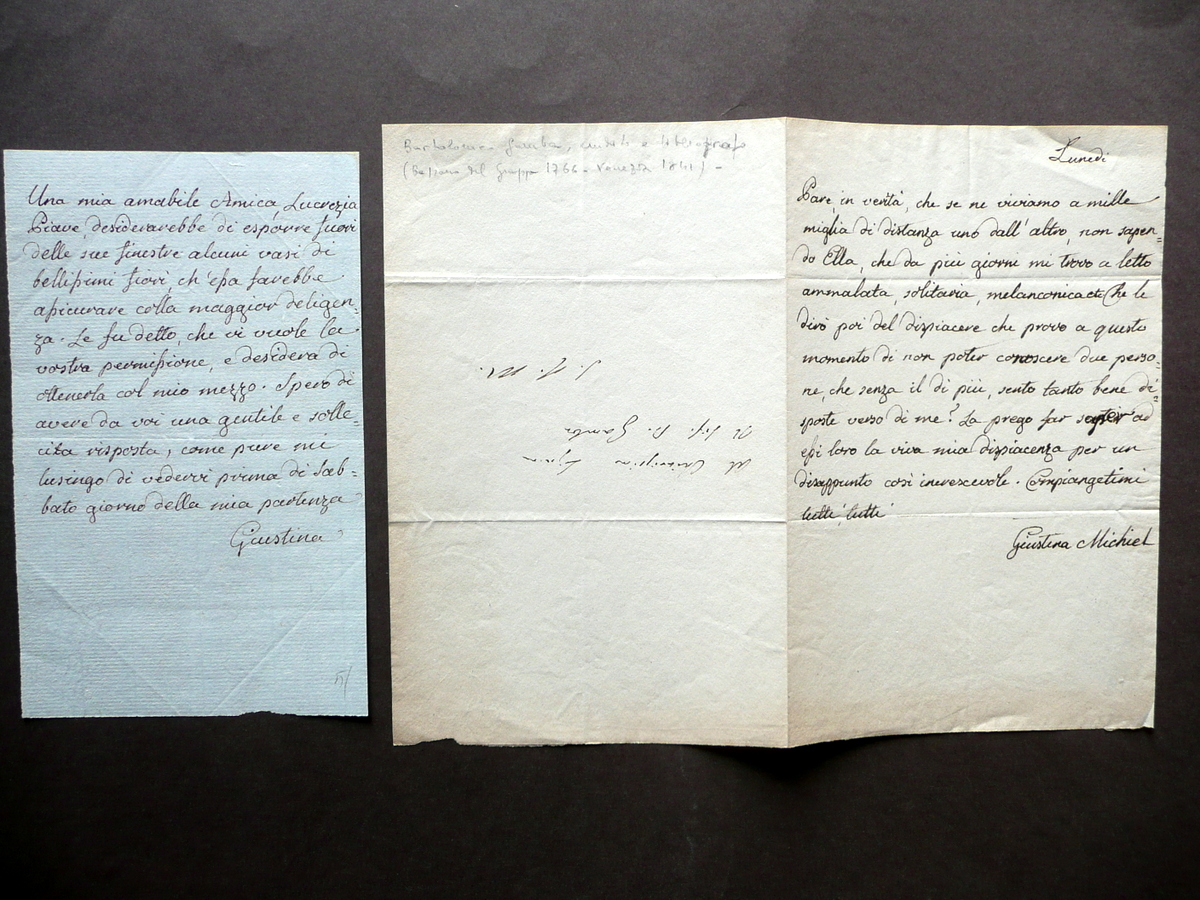 Una mia amabile Amica, Lucrezia
Piave, desiderarebbe di esporre fuori
delle sue finestre alcuni vasi di
bellissimi fiori, ch'essa farebbe
assicurare colla maggior deligen=
za. Le fu detto, che vi vuole la
vostra permissione, e desidera di
ottenerla col mio mezzo. Spero di
avere da voi una gentile e solle=
cita risposta, come pure mi
lusingo di vedervi prima di Sab=
bato giorno della mia partenza
Giustina
Bartolomeo Gamba, erudito e bibliografo
(Bassano del Grappa 1766 - Venezia 1841) -
Al
Il Sig. B. Gamba
Lunedì
Pare, in verità, che se ne viviamo a mille
miglia di distanza uno dall'altro, non sapen=
do Ella, che da più giorni mi trovo a letto
ammalata, solitaria, melanconica etc Che le
dirò poi del dispiacere che provo a questo
momento di non poter conoscere due perso=
ne, che senza il di più, sento tanto bene di=
sposte verso di me? La prego far saper ad
essi loro la viva mia dispiacenza per un
disappunto così increscevole. Compiangetimi
tutti, tutti
Giustina Michiel